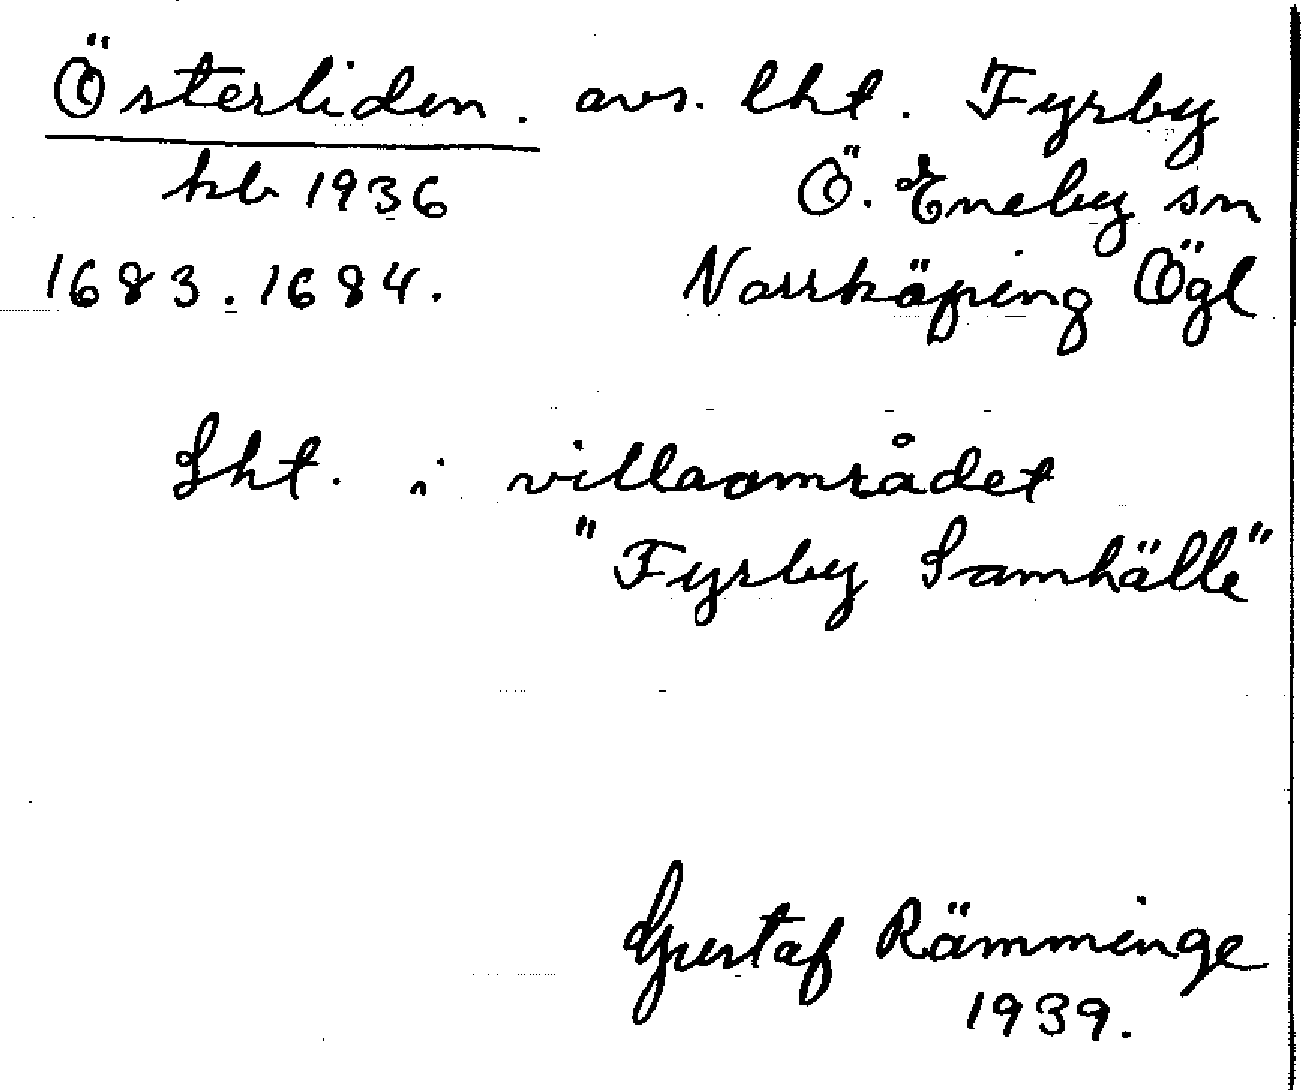 Österliden. avs. lht. Fyrby
kb 1936 Ö. Eneby sn
1683. 1684. Norrköping Ögl
Lht. i villaområdet
"Fyrby Samhälle"
Gustaf Rämminge
1939.